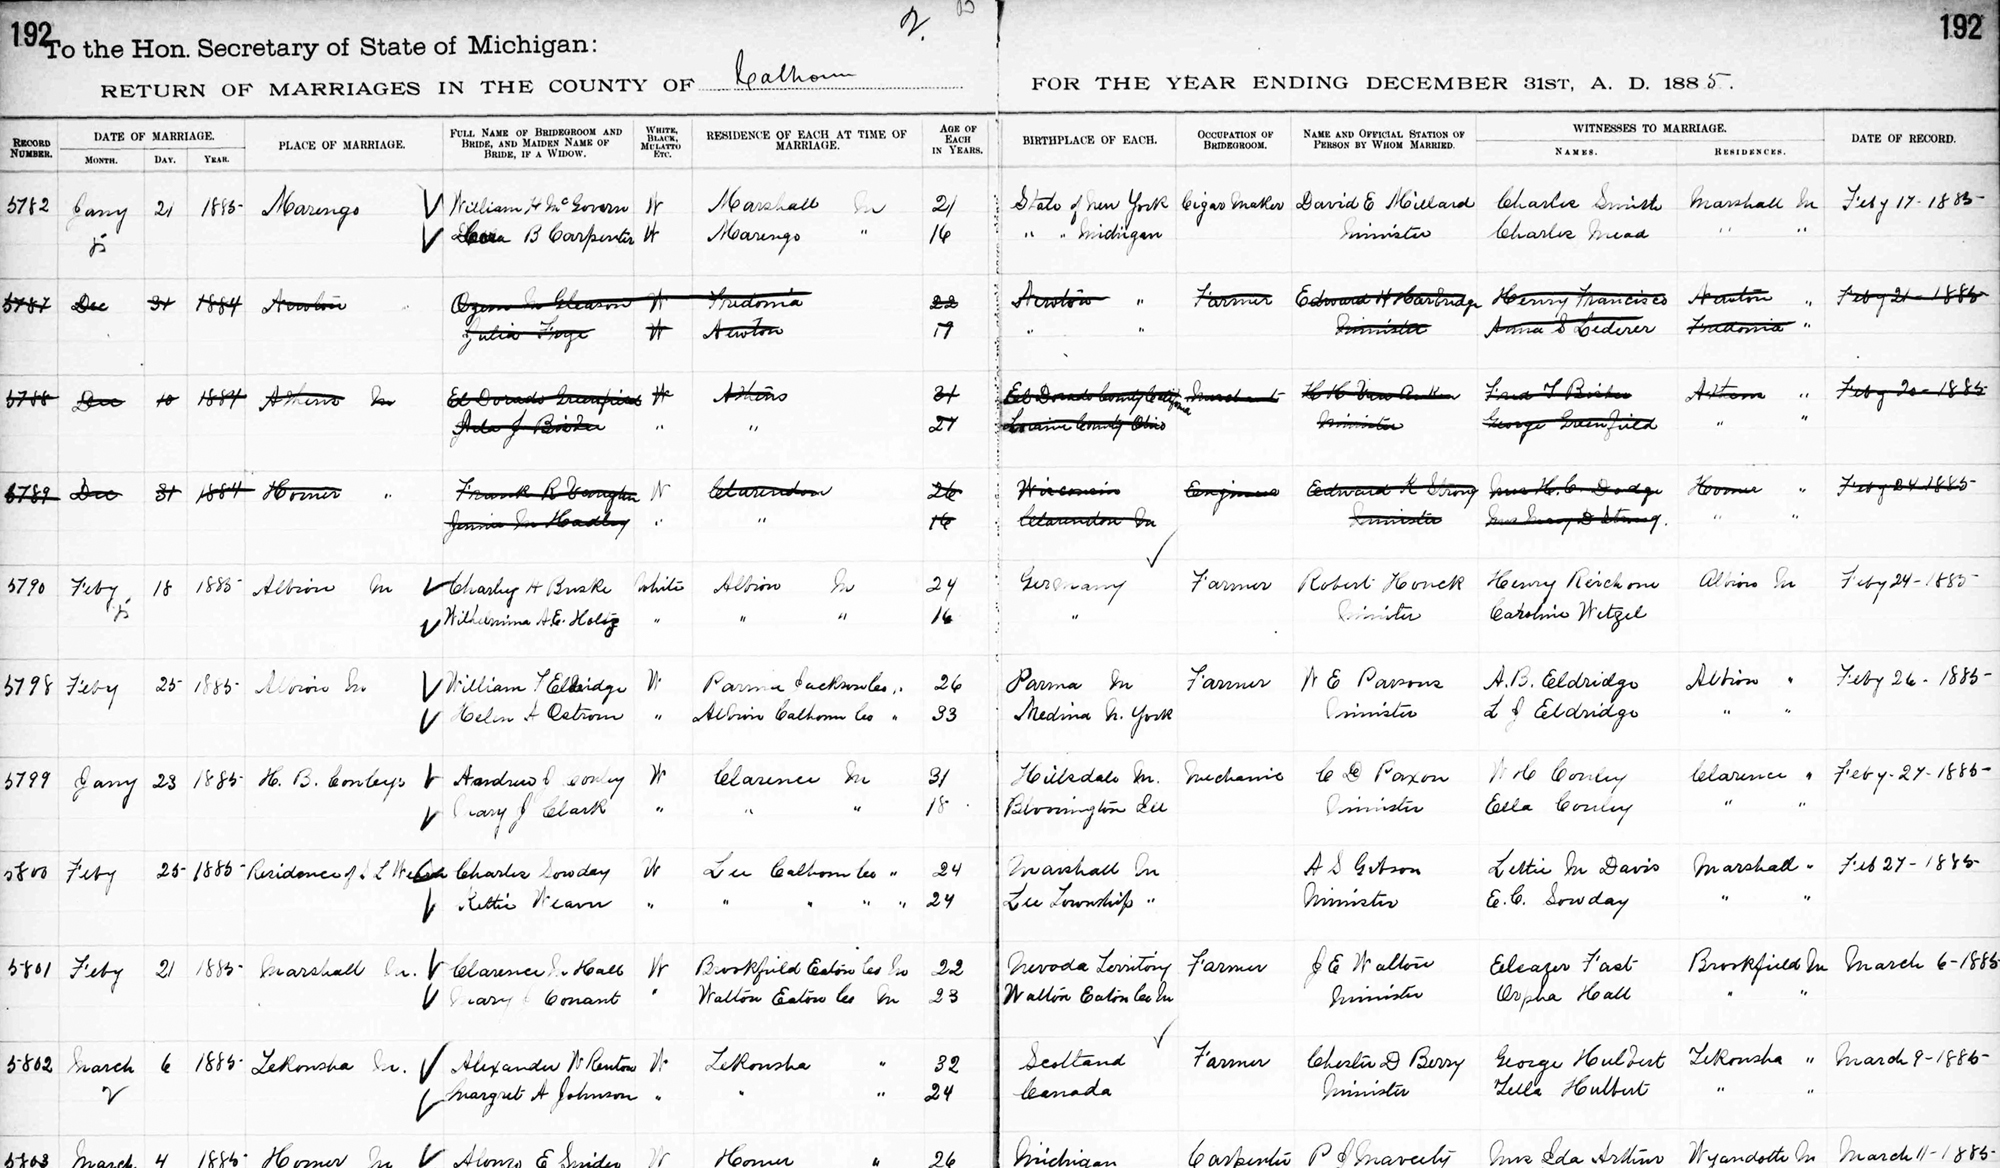 192 2. 192
To the Hon. Secretary of State of Michigan:
RETURN OF MARRIAGES IN THE COUNTY OF Calhoun FOR THE YEAR ENDING DECEMBER 31ST, A. D. 1885.
RECORD NUMBER. DATE OF MARRIAGE. MONTH. DAY. YEAR. PLACE OF MARRIAGE. FULL NAME OF BRIDEGROOM AND BRIDE, AND MAIDEN NAME OF BRIDE, IF A WIDOW. WHITE, BLACK, MULATTO ETC. RESIDENCE OF EACH AT TIME OF MARRIAGE. AGE OF EACH IN YEARS. BIRTHPLACE OF EACH. OCCUPATION OF BRIDEGROOM. NAME AND OFFICIAL STATION OF PERSON BY WHOM MARRIED. WITNESSES TO MARRIAGE. NAMES. RESIDENCES. DATE OF RECORD.
5782 Jany 21 1885 Marengo William H McGovern W Marshall M 21 State of New York Cigar Maker David E Millard Charles Smith Marshall M Feby 17-1885
B Carpenter W Marengo " 16 " " Michigan Minister Charles Mead " "
5787 Dec 31 1884 Newton Gleason W Fredonia 22 Newton " Farmer Edward H Harbridge Henry Francisco Newton " Feby 21-1885
Julia W Newton " " Minister Anna S Lederer Fredonia "
5788 Dec 10 1884 Athens M El Dorado Greenfield W Athens 31 El Dorado County California Merchant Athens " Feby 20-1885
" " 27 Loraine County Ohio Minister George Greenfield " "
5789 Dec 31 1884 Homer " Frank R W Clarendon 26 Wisconsin Engineer Edward K Strong Mrs H.C. Dodge Homer " Feby 24 1885
Jennie M Hadley " " 16 Clarendon M Minister Mrs D Strong. " "
5790 Feby 18 1885 Albion M Charley H Buske White Albion M 24 Germany Farmer Robert Houck Henry Albion M Feby 24-1885
Wilhelmina A.E. Holtz " " " 16 " Minister Caroline Wetzel
5798 Feby 25 1885 Albion M William T Eldridge W Parma Jackson Co " 26 Parma M Farmer W E Parsons A.B. Eldridge Albion " Feby 26-1885
Helen A Ostrom " Albion Calhoun Co " 33 Medina N. York Minister L J Eldridge " "
5799 Jany 23 1885 H. B. Conleys Andrew J Conley W Clarence M 31 Hillsdale M. Mechanic C D Paxon W C Conley Clarence " Feby-27-1885
Mary J Clark " " " 18 Bloomington Ill Minister Ella Conley " "
5800 Feby 25 1885 Residence of Charles Sowday W Lee Calhoun Co " 24 Marshall M A S Gibson Lettie M Davis Marshall " Feb 27-1885
Kittie Weaver " " " " " 24 Lee Township " Minister E.C. Sowday " "
5801 Feby 21 1885 Marshall M. Clarence M Hall W Brookfield Eaton Co M 22 Nevoda Territory Farmer J E Walton Eleazer Fast Brookfield M March 6-1885
Mary J Conant " Walton Eaton Co M 23 Walton Eaton Co M Minister Orpha Hall " "
5802 March 6 1885 Tekonsha M. Alexander W Renton W Tekonsha " 32 Scotland Farmer Chester D Berry George Hulbert Tekonsha " March 9-1885
Margret A Johnson " " " 24 Canada Minister Zella Hulbert " "
5803 March 4 1885 Homer M Alonzo E Snider W Homer " 26 Michigan Carpenter P J Maveety Mrs Ida Arthur Wyandotte M March 11-1885